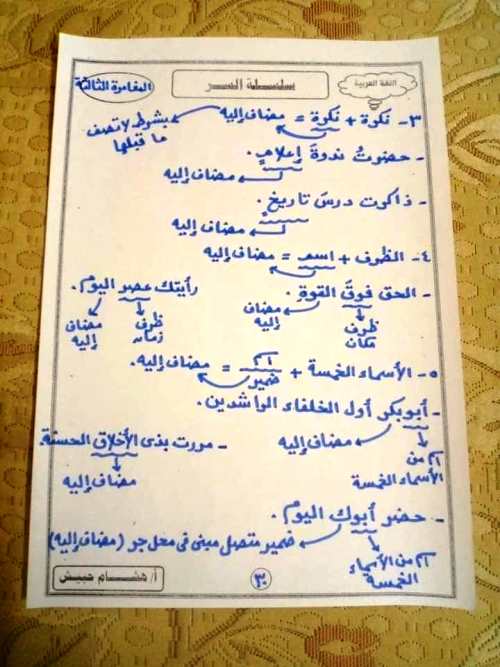 اللغة العربية
سلسلة السر
المغامرة الثالثة
٣- نكرة + نكرة = مضاف إليه بشرط لاتصف
ما قبلها
- حضرتُ ندوةَ إعلامٍ.
مضاف إليه
- ذاكرت درسَ تاريخٍ.
مضاف إليه
٤- الظروف + اسم = مضاف إليه
- الحق فوقَ القوةِ. رأيتك عصرَ اليوم.
ظرف مكان مضاف إليه ظرف زمان مضاف إليه
٥- الأسماء الخمسة + اسم / ضمير = مضاف إليه.
- أبوبكر أول الخلفاء الراشدين.
مضاف إليه - مررت بذى الأخلاق الحسنة.
اسم من الأسماء الخمسة مضاف إليه
- حضر أبوك اليوم.
ضمير متصل مبنى فى محل جر (مضاف إليه)
اسم من الأسماء الخمسة
٣
أ/ هشام حبيش